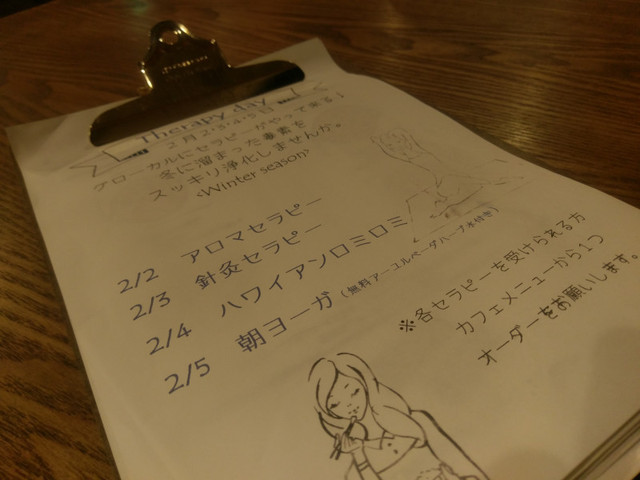 Therapy day
2月2・3・4・5日
グローカルにセラピーがやって来る♪
冬に溜まった毒素を
スッキリ浄化しませんか。
<Winter season>
2/2 アロマセラピー
2/3 針灸セラピー
2/4 ハワイアンロミロミ
2/5 朝ヨーガ(無料アーユルベーダハーブ水付き)
※各セラピーを受けられる方
カフェメニューから1つ
オーダーをお願いします。